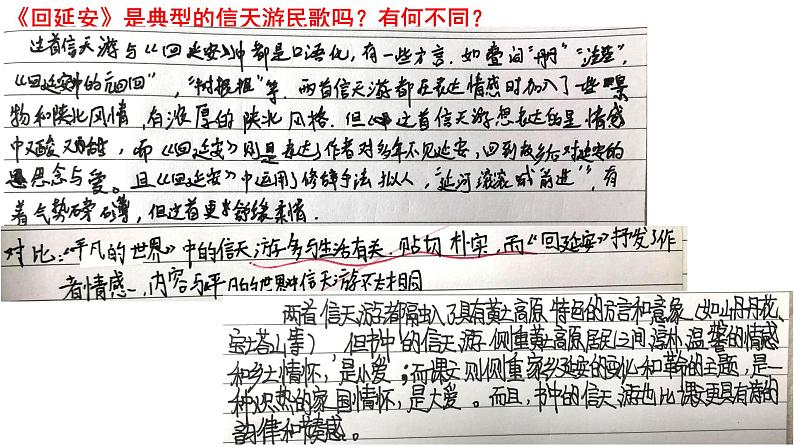 《回延安》是典型的信天游民歌吗？有何不同？
这首信天游与《回延安》中都是口语化，有一些方言，如叠词
《回延安》中的"树根根"等，两首信天游都在表达情感时加入了一些景
物和陕北风情，有浓厚的陕北风格。但这首信天游想表达的是情感
中又酸又甜，而《回延安》则是表达了作者对多年不见延安，回到故乡后对延安的
思念与爱。且《回延安》中运用了修辞手法拟人，"延河滚滚喊'前进'"，有
着气势磅礴，但这首更舒缓柔情.
对比：《平凡的世界》中的信天游多与生活有关，贴切朴实，而《回延安》抒发了作
者情感，内容与平凡的世界中信天游不大相同
两首信天游都融入了具有黄土高原特色的方言和意象（如山丹丹花、
宝塔山等），但书中的信天游侧重黄土高原居民之间淳朴温馨的情感
和乡土情怀，是小爱；而课文则侧重家乡延安的变化和革命的主题，是一
种炽热的家国情怀，是大爱。而且，书中的信天游也比课文更具有
韵律和情感。